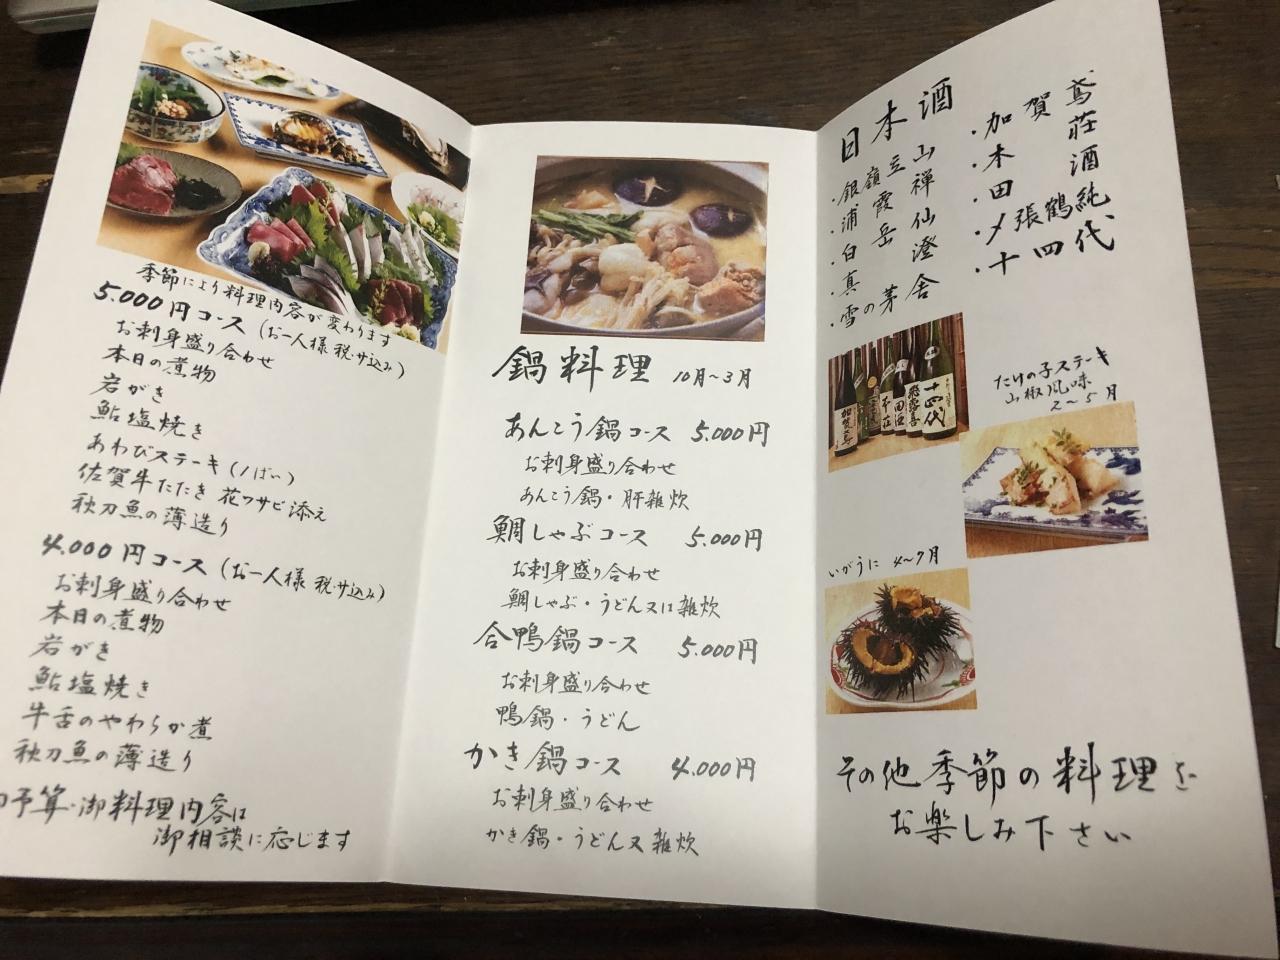 季節により料理内容が変わります
5.000円コース (お一人様 税・サ込み)
お刺身盛り合わせ
本日の煮物
岩がき
鮎塩焼き
あわびステーキ (1ぱい)
佐賀牛たたき 花ワサビ添え
秋刀魚の薄造り
4.000円コース (お一人様 税・サ込み)
お刺身盛り合わせ
本日の煮物
岩がき
鮎塩焼き
牛舌のやわらか煮
秋刀魚の薄造り
予算・御料理内容は
御相談に応じます
鍋料理 10月〜3月
あんこう鍋コース 5.000円
お刺身盛り合わせ
あんこう鍋・肝雑炊
鯛しゃぶコース 5.000円
お刺身盛り合わせ
鯛しゃぶ・うどん又は雑炊
合鴨鍋コース 5.000円
お刺身盛り合わせ
鴨鍋・うどん
かき鍋コース 4.000円
お刺身盛り合わせ
かき鍋・うどん又雑炊
日本酒
・銀嶺立山
・浦霞禅
・白岳仙
・真澄
・雪の茅舎
・加賀鳶
・木荘
・田酒
・〆張鶴純
・十四代
加賀鳶
田酒
飛露喜
十四代
たけの子ステーキ
山椒風味
2〜5月
いがうに 4〜7月
その他季節の料理を
お楽しみ下さい